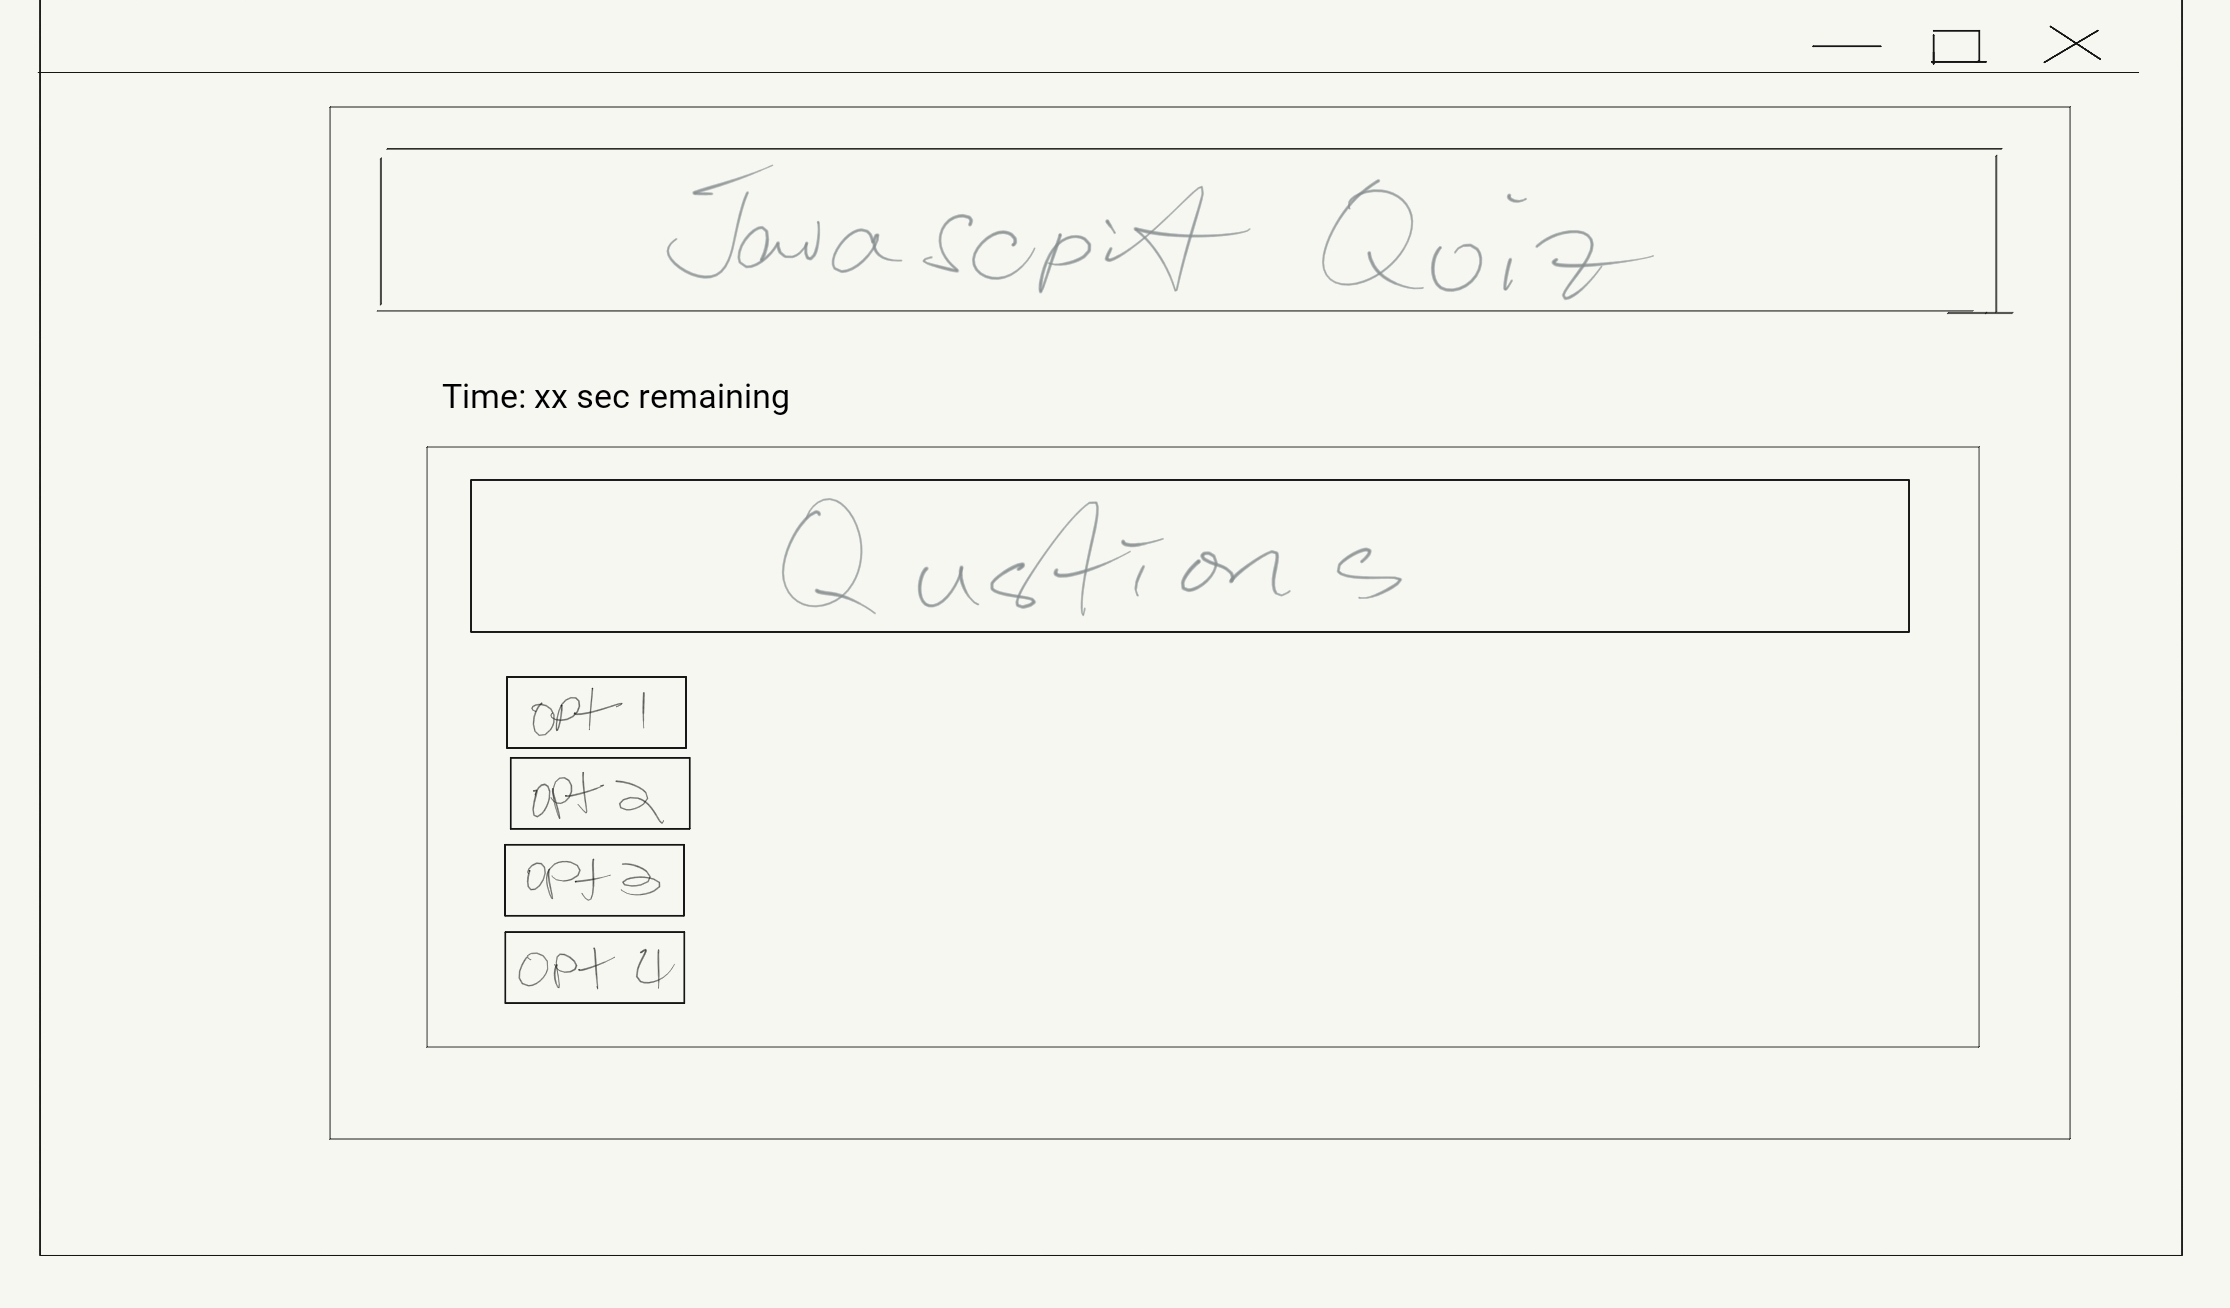 Javascpit Quiz
Time: xx sec remaining
Qustions
opt 1
opt 2
opt 3
opt 4